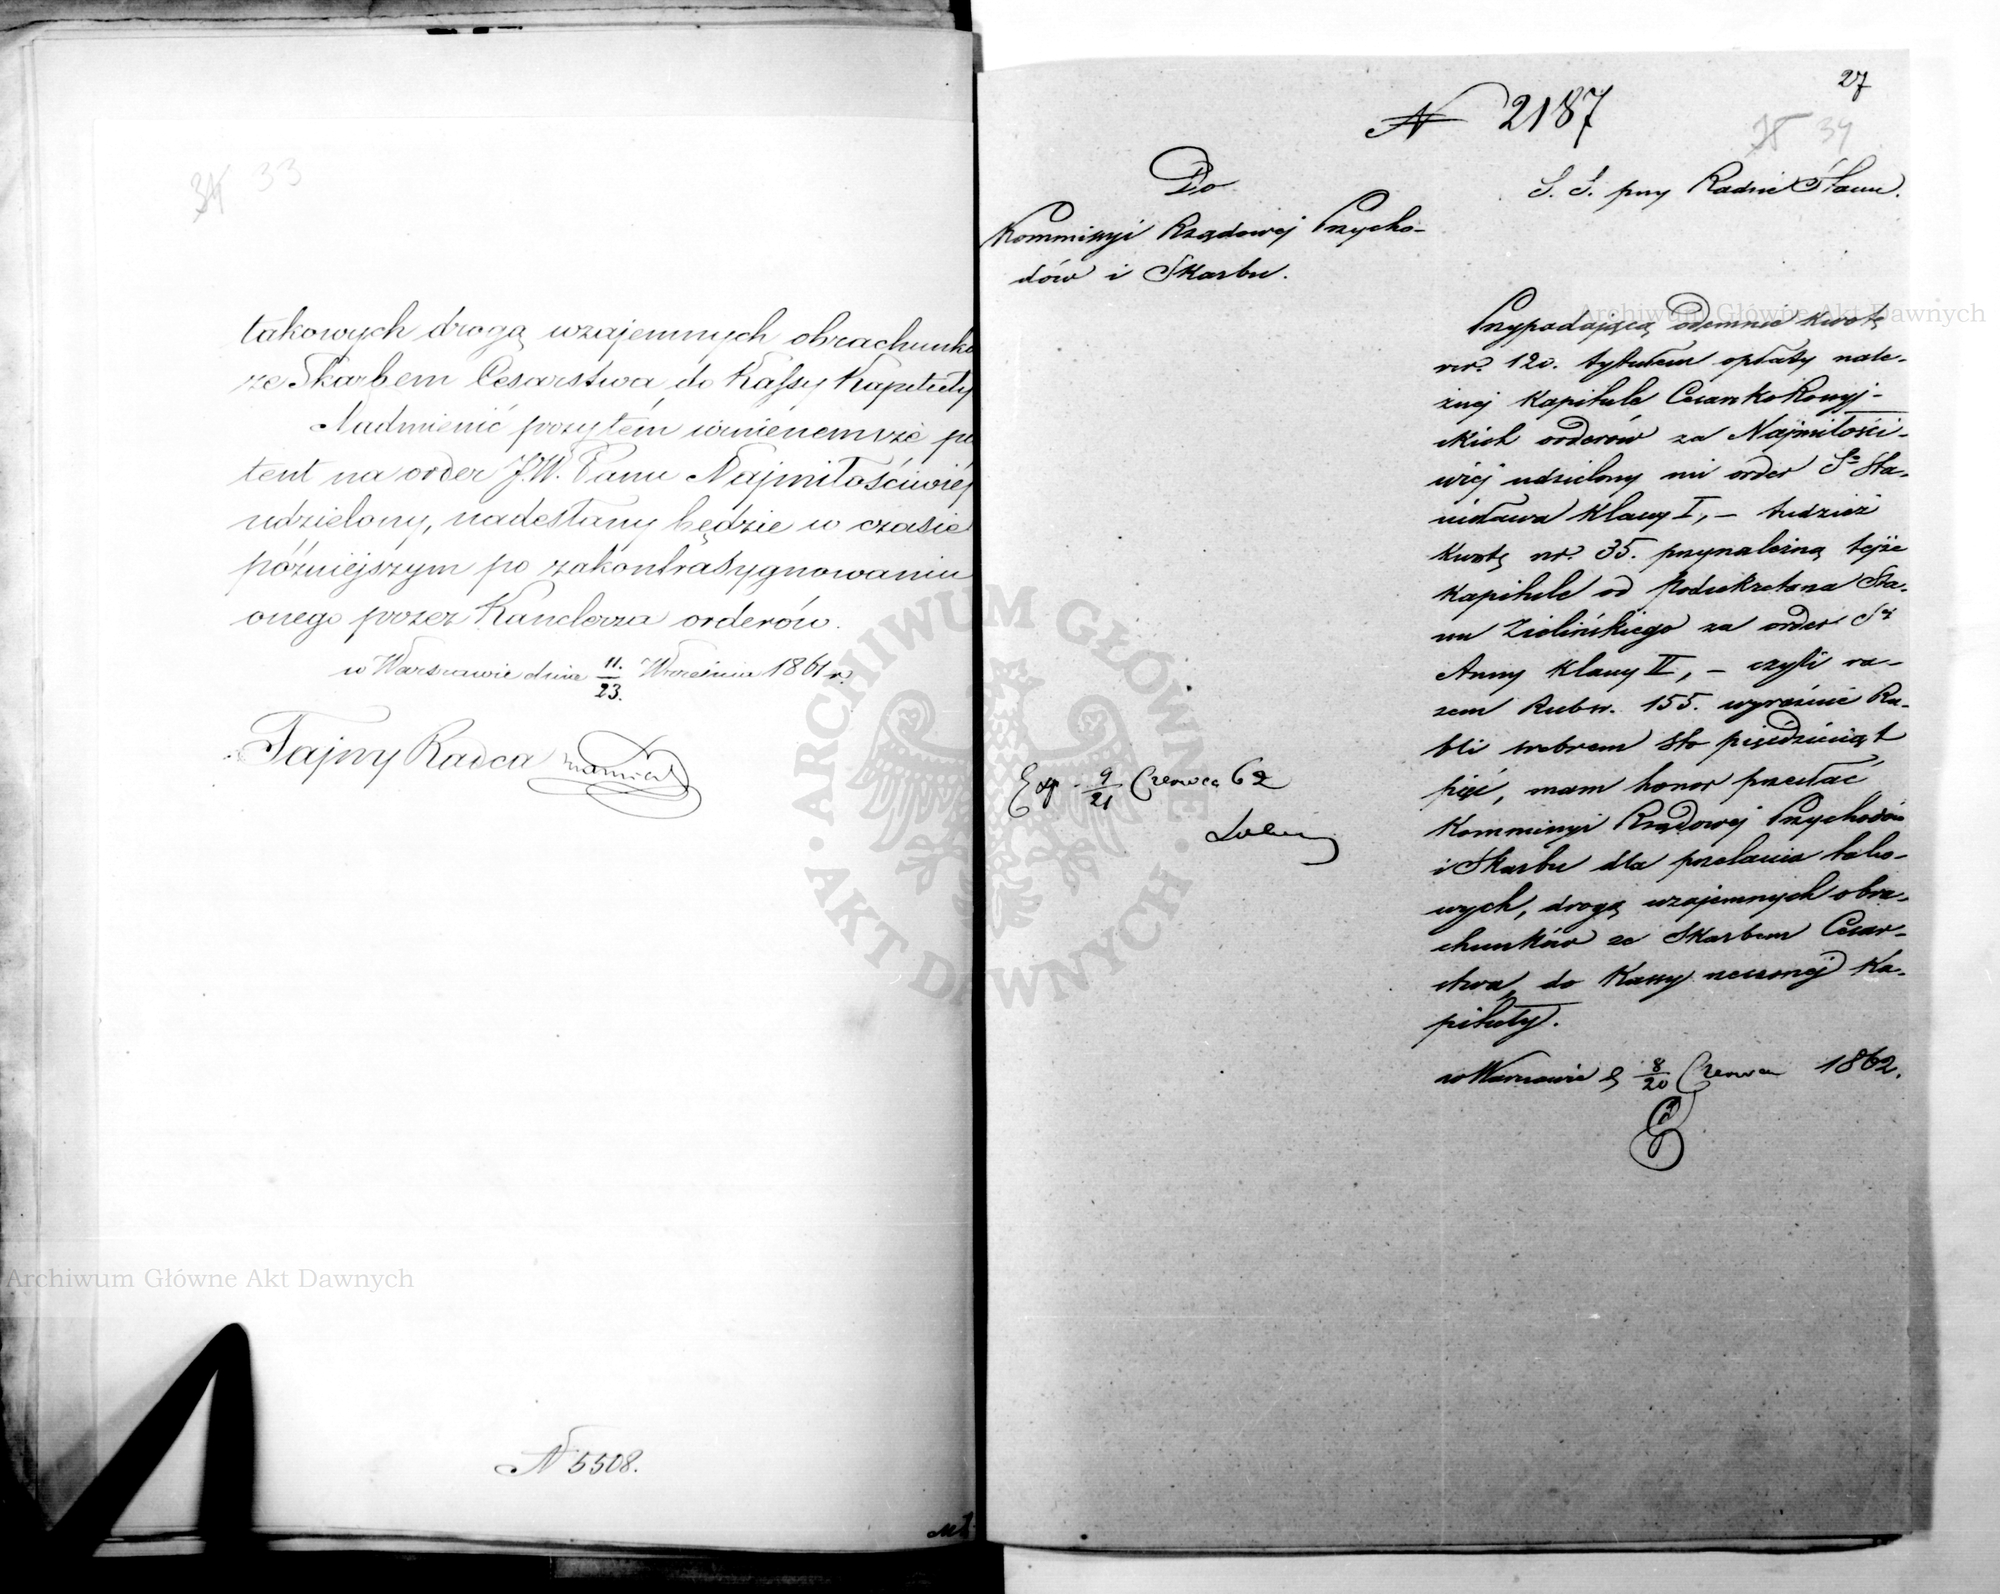 34 33
takowych drogą wzajemnych obrachunkó
ze Skarbem Cesarstwa, do Kassy Kapituły
Nadmienić przytém winienem że pa
tent na order J.W. Panu Najmiłościwiéj
udzielony, nadesłany będzie w czasie
późniejszym po zakontrasygnowaniu
onego przez Kanclerza orderów.
w Warszawie dnia 11./23. Września 1861 r.
Tajny Radca
N 5508.
27
N 2187
34
Do
Kommissyi Rządowej Przycho-
dów i Skarbu.
S. S. przy Radzie Stanu.
Przypadającą odemnie kwotę
rsr. 120. tytułem opłaty nale-
żnej Kapitule Cesarsko Rossyj-
skich orderów za Najmiłości-
wiej udzielony mi order Sgo Sta-
nisława klassy I, – tudzież
kwotę rsr. 35. przynależną tejże
Kapitule od Podsekretarza Sta-
nu Zielińskiego za order Stej
Anny klassy II, – czyli ra-
zem Rubsr. 155. wyraźnie Ru-
bli srebrem sto pięćdziesiąt
pięć, mam honor przesłać
Kommissyi Rządowej Przychodów
i Skarbu dla przelania tako-
wych, drogą wzajemnych obra-
chunków ze Skarbem Cesar-
stwa, do Kassy rzeczonej Ka-
pituły.
w Warszawie d. 8/20 Czerwca 1862.
Exp. 9/21 Czerwca 62
Archiwum Główne Akt Dawnych
Archiwum Główne Akt Dawnych
ARCHIWUM GŁÓWNE · AKT DAWNYCH ·